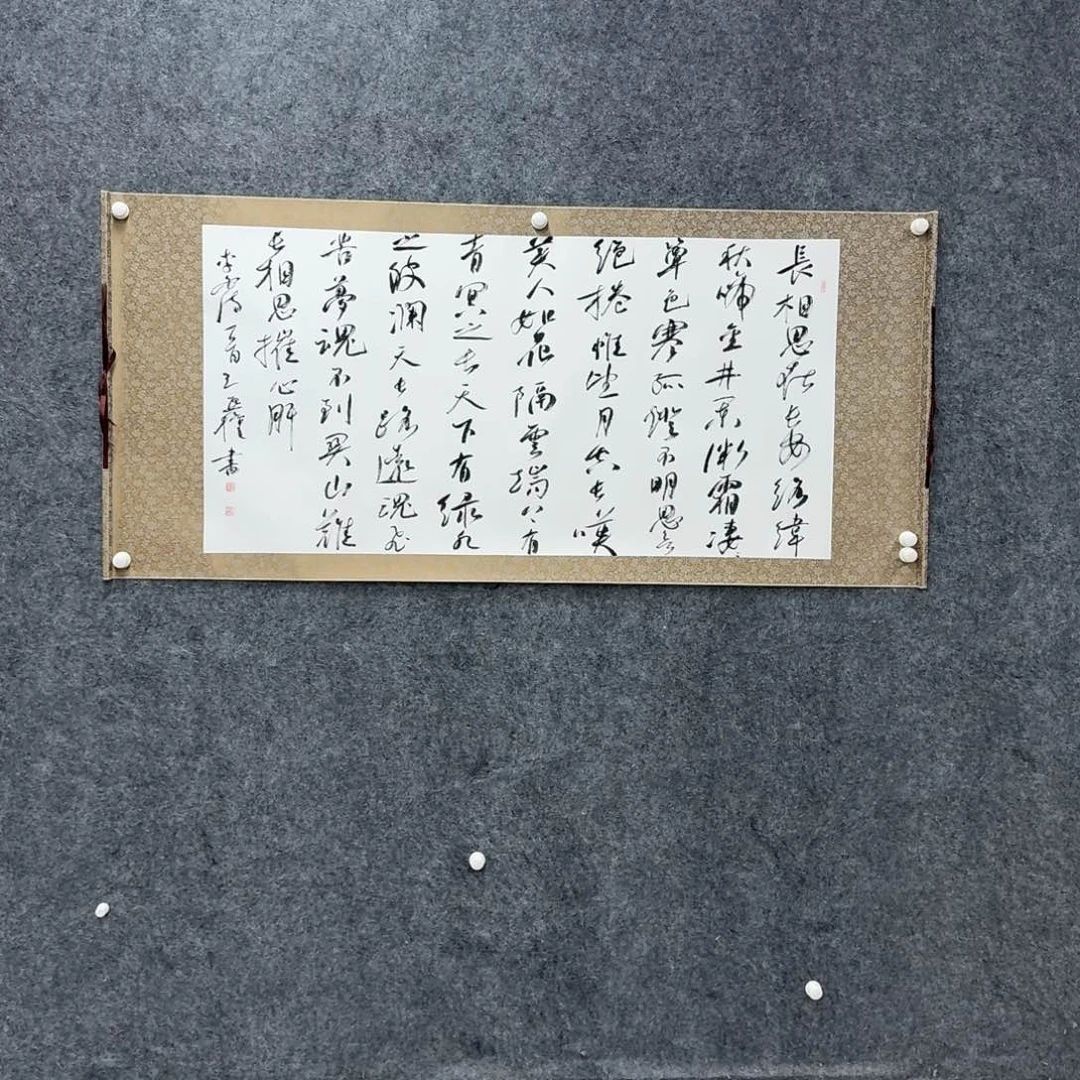 長相思在長安絡緯
秋啼金井闌微霜凄〻
簟色寒孤燈不明思欲
絕捲帷望月空長嘆
美人如花隔雲端上有
青冥之長天下有綠水
之波瀾天長路遠魂飛
苦夢魂不到關山難
長相思摧心肝
李白詩一首王書